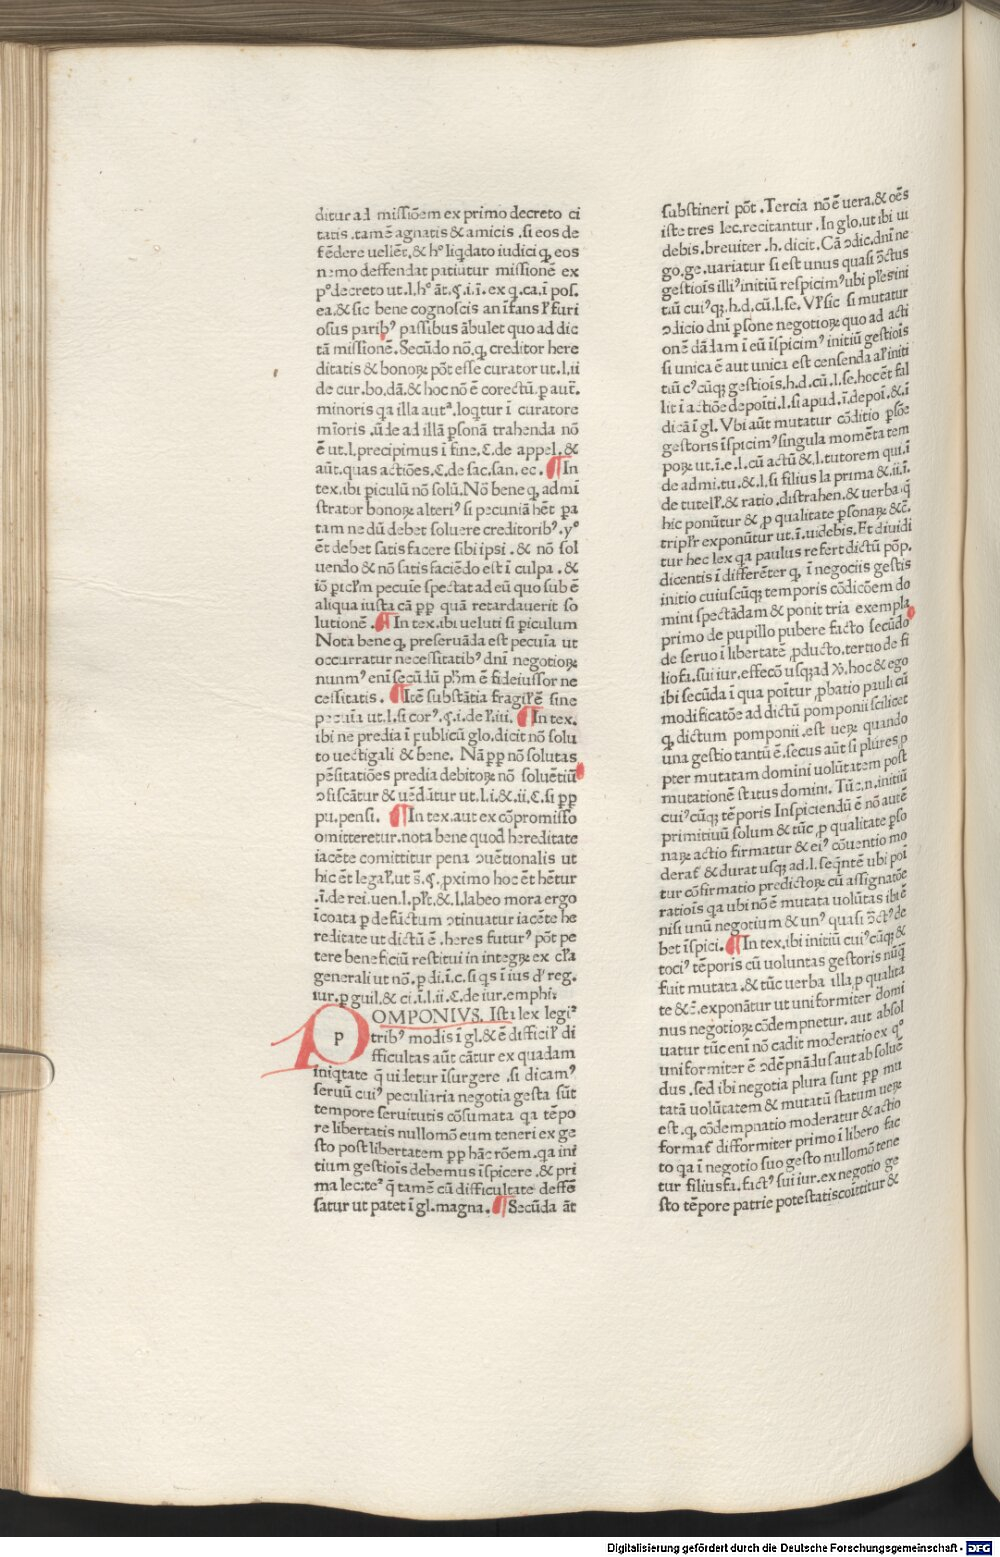 ditur ad missiōem ex primo decreto ci
tatis .tamē agnatis & amicis .si eos de
fēdere ueliēt.& hº liqdato iudici q̨ eos
nemo deffendat patiutur missionē ex
pº decreto ut.l.hº āt.ꝗ.i.ī. ex q̨.ca.ī pos.
ea.& sic bene cognoscis an īfans ꝉ furi
osus paribꝰ passibus ābulet quo ad dic
tā missionē. Secūdo nō.q̨ creditor here
ditatis & bonoꝝ pōt esse curator ut.l.ii
de cur.bo.dā.& hoc nō ē corectū.p aut̄.
minoris qa illa autᵃ.loqtur ī curatore
mīoris .ūde ad illā ꝑsonā trahenda nō
ē ut.l.precipimus ī fine.C.de appel.&
aūt.quas actiōes.C.de sac.san. ec. ¶ In
tex.ibi piculū nō solū. Nō bene q̨ admī
strator bonoꝝ alteriꝰ si pecuniā hēt pa
tam ne dū debet soluere creditoribꝰ.yº
ēt debet satis facere sibi ipsi .& nō sol
uendo & nō satis faciēdo est ī culpa .&
iō ꝑicꝉm pecuīe spectat ad eū quo sub ē
aliqua iusta cā pp quā retardauerit so
lutionē . ¶ In tex.ibi ueluti si ꝑiculum
Nota bene q̨ preseruāda est pecuīa ut
occurratur necessitatibꝰ dnī negotioꝝ
nunmꝰ enī secūdū pħm ē fideiussor ne
cessitatis . ¶ Itē substātia fragiꝉ ē sine
pecuīa ut.l.si corꝰ.ꝗ.i.de ꝉ.iii. ¶ In tex.
ibi ne predia ī publicū glo.dicit nō solu
to uectigali & bene. Nā pp nō solutas
pēsitatiōes predia debitoꝝ nō soluētiū
ↄfiscātur & uēdātur ut.l.i.& ii.C.si pp
pu.pensi. ¶ In tex.aut ex cōpromisso
omitteretur.nota bene quod hereditate
iacēte comittitur pena ↄuētionalis ut
hic ēt legaꝉ.ut s̄.ꝗ.ꝓximo hoc ēt hētur
.ī.de rei.uen.l.pꝉt.& l.labeo mora ergo
īcoata p defūctum ↄtinuatur iacēte he
reditate ut dictū ē .heres futurꝰ pōt pe
tere beneficiū restitui in integꝝ ex cꝉa
generali ut nō.p di.i.c.si qs ī ius dꝰ reg.
iur.p guil.& ci.ī.l.ii.C.de iur.emphi:
POMPONIVS. Ista lex legiᵗ
tribꝰ modis ī gl.& ē difficiꝉ di
fficultas aūt cātur ex quadam
iniqtate q̄ uidetur īsurgere .si dicamꝰ
seruū cuiꝰ peculiaria negotia gesta sūt
tempore seruitutis cōsumata qa tēpo
re libertatis nullomō eum teneri ex ge
sto post libertatem pp hāc rōem.qa inī
tium gestiois debemus īspicere .& pri
ma lec:teᵃ q̄ tamē cū difficultate deffē
satur ut patet ī gl.magna. ¶ Secūda āt
substineri pōt .Tercia nō ē uera.& oēs
iste tres lec.recitantur .In glo.ut ibi ui
debis.breuiter .h.dicit. Cā ↄdic.dnī ne
go.ge.uariatur si est unus quasi ↄ̄ctus
gestiois illiꝰ initiū respicimꝰ ubi pꝉes ini
tiū cuiꝰ qꝫ.h.d.cū.l.se. Vꝉ sic si mutatur
ↄdicio dnī ꝑsone negotioꝝ quo ad acti
onē dādam ī eū īspicimꝰ initiū gestiois
si unica ē aut unica est censenda aꝉ initi
tiū cꝰ cūqꝫ gestiois.h.d.cū.l.se.hoc ēt fal
lit ī actiōe depoīti.l.si apud.ī.depoī.& ī
dicā ī gl. Vbi aūt mutatur cōditio ꝑsōe
gestoris īspicimꝰ singula momēta tem
poꝝ ut.ī.e.l.cū actū & l.tutorem qui.ī
de admi.tu.& l.si filius la prima & ii.ī.
de tuteꝉ.& ratio.distrahen.& uerba.q̄
hic ponūtur & ,p qualitate ꝑsonaꝝ & c̄.
tripꝉr exponūtur ut.ī.uidebis. Et diuidi
tur hec lex qa paulus refert dictū pōp.
dicentis ī differēter q̨ ī negociis gestis
initio cuiuscūqꝫ temporis cōdicōem do
mini spectādam & ponit tria exempla
primo de pupillo pubere facto secūdo
de seruo ī libertatē ,ꝓducto.tertio de fi
lio fa.sui iur.effecō usqꝫ ad ꝟo.hoc & ego
ibi secūda ī qua poītur ,pbatio pauli cū
modificatōe ad dictū pomponii scilicet
q̨ dictum pomponii.est ueꝝ quando
una gestio tantū ē.secus aūt si plures p
pter mutatam domini uolūtatem post
mutationē status domini. Tūc.n.initiū
cuiꝰ cūqꝫ tēporis Inspiciendū ē nō autē
primitiuū solum & tūc ,p qualitate ꝑso
naꝝ actio firmatur & eiꝰ cōuentio mo
deraꞇ̄ & durat usqꝫ ad.l.seqntē ubi poī
tur cōfirmatio predictoꝝ cū assignatōe
ratiois qa ubi nō ē mutata uolūtas ibi ē
nisi unū negotium & unꝰ quasi ↄ̄ctꝰ de
bet īspici. ¶ In tex.ibi initiū cuiꝰ cūqꝫ &
tociꝰ tēporis cū uoluntas gestoris nūq̄
fuit mutata .& tūc uerba illa p qualita
te & c̄.exponātur ut uniformiter domi
nus negotioꝝ cōdempnetur. aut absol
uatur tūc enī nō cadit moderatio ex qº
uniformiter ē ↄdēpnādu saut absoluē
dus .sed ibi negotia plura sunt pp mu
tatā uolūtatem & mutatū statum ueꝝ
est.q̨ cōdempnatio moderatur & actio
formaꞇ̄ difformiter primo ī libero fac
to qa ī negotio suo gesto nullomō tene
tur filiusfa.factꝰ sui iur.ex negotio ge
sto tēpore patrie potestatis coītitur &
Digitalisierung gefördert durch die Deutsche Forschungsgemeinschaft - DFG